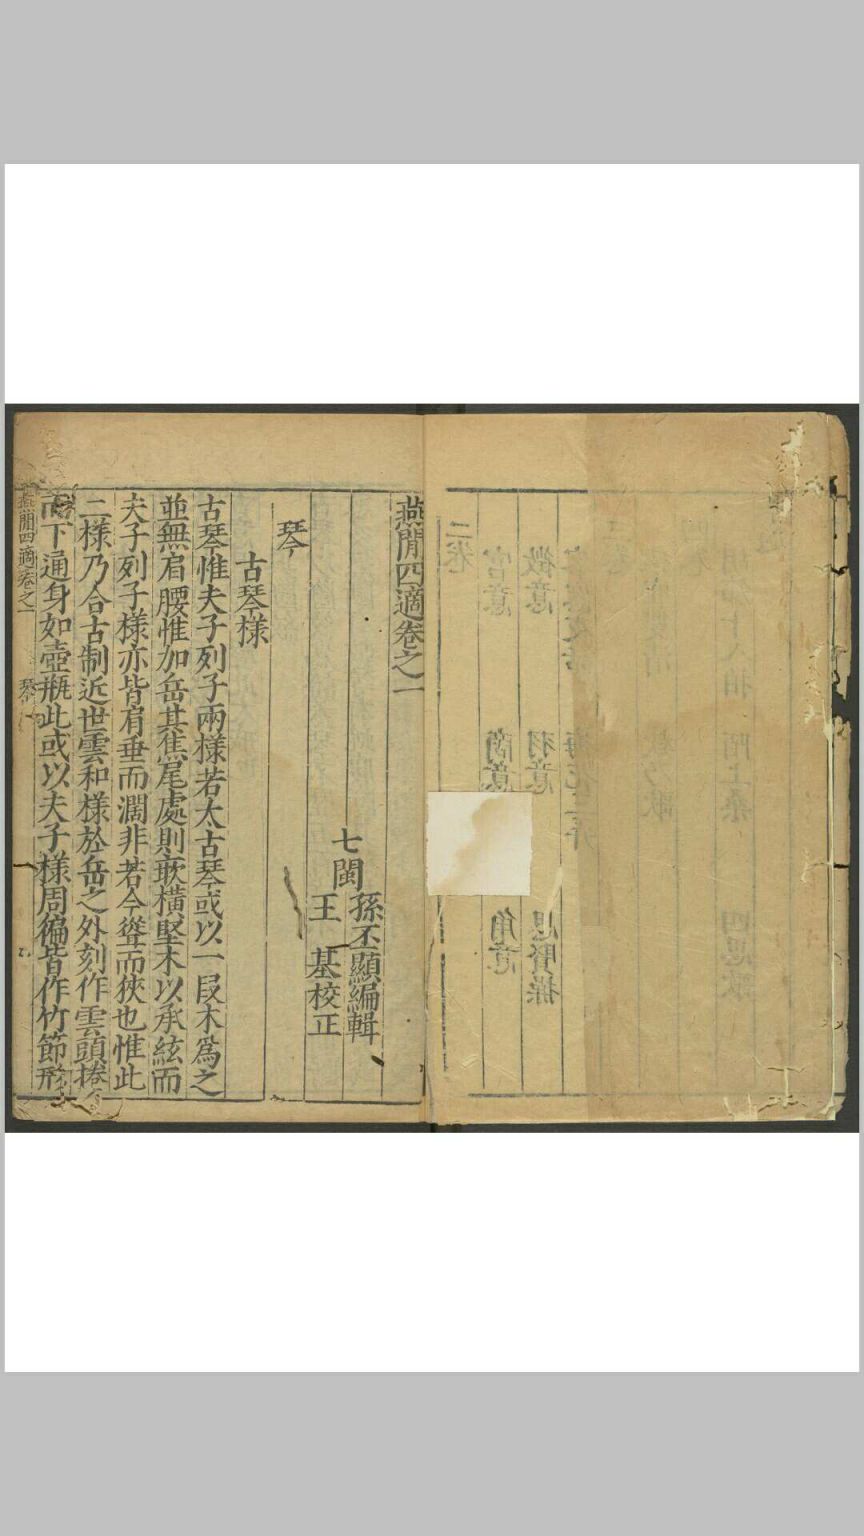 燕閒四適卷之一
孫丕顯編輯
七閩
王　基校正
琴
古琴樣
古琴惟夫子列子兩樣若太古琴或以一段木爲之
並無肩腰惟加岳其焦尾處則嵌橫堅木以承絃而
夫子列子樣亦皆肩垂而濶非若今聳而狹也惟此
二樣乃合古制近世雲和樣於岳之外刻作雲頭捲
而下通身如壺瓶此或以夫子樣周徧皆作竹節形
燕閒四適卷之一　琴
二卷
宮意　商意　角意
徵意　羽意　思賢操